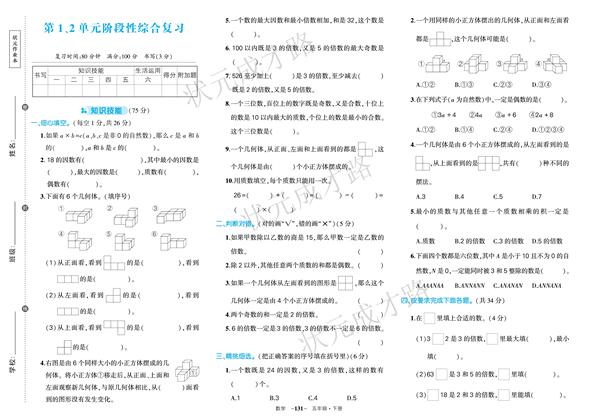 状元作业本
姓名：
班级：
学校：
第1、2单元阶段性综合复习
复习时间:80分钟 满分:100分 书写(3分)
书写 知识技能 生活运用 得分 附加题
一 二 三 四 五 六
知识技能 (75分)
一、细心填空。(每空1分,共26分)
1.如果a×b=c(a,b,c是非0的自然数),那么c是a和b
的( ),a和b是c的( )。
2. 18的因数有( ),其中最小的因数是
( ),最大的因数是( ),质数有( ),
偶数有( )。
3.下面有6个几何体。(填序号)
① ② ③
④ ⑤ ⑥
(1)从正面看,看到 的是( ),看到
的是( )。
(2)从左面看,看到 的是( ),看到
的是( )。
(3)从上面看,看到 的是( ),看到
的是( )。
4.右图是由6个同样大小的小正方体摆成的几
何体。将小正方体①移走后,从正面、上面和
左面观察新几何体,与原几何体相比,从( )面看
到的图形没有发生变化。
5.一个数的最大因数和最小倍数相加,和是32,这个数是
( )。
6. 100以内既是3的倍数,又是5的倍数的最大奇数是
( )。
7. 526至少加上( )是3的倍数,至少减去( )
既是2的倍数,又是5的倍数。
8.一个三位数,百位上的数字既是奇数,又是合数,十位上
的数是10以内最大的质数,个位上的数是最小的合数,
这个三位数是( )。
9.一个几何体,从正面、左面和上面看到的都是 ,这
个几何体是由( )个小正方体摆成的。
10.用质数填空,每个质数只能用一次。
26=( )+( )=( )-( )=
( )×( )
二、判断对错。(对的画“√”,错的画“×”)(5分)
1.如果甲数除以乙数的商是15,那么甲数一定是乙数的
倍数。 ( )
2.除2以外,其他任意两个质数的和都是偶数。( )
3.如果一个几何体从左面看到的图形是 ,那么这个
几何体一定是由4个小正方体摆成的。 ( )
4.两个奇数的和一定是2的倍数。 ( )
5. 6的倍数一定是3的倍数,3的倍数不一定是6的倍数。
( )
三、精挑细选。(把正确答案的序号填在括号里)(6分)
1.一个数既是24的因数,又是3的倍数,这样的数有
( )个。
A.1 B.3 C.4 D.5
2.一个用同样的小正方体摆出的几何体,从正面和左面看
都是 ,这个几何体可能是( )。
① ② ③ ④
A.①② B.①③ C.②③ D.③④
3.在下列式子(a为自然数)中,一定是偶数的是( )。
①3a+4 ②4a+3 ③4a+6 ④2a+8
A.①② B.①④ C.③④ D.①②③④
4.一个几何体是由6个小正方体摆成的,从左面看到的是
,从上面看到的是 ,共有( )种不同的
摆法。
A.3 B.4 C.5 D.7
5.最小的质数与其他任意一个质数相乘的积一定是
( )。
A.质数 B.2的倍数 C.3的倍数 D.5的倍数
6.下面四个数都是六位数,其中A是小于10且不为0的自
然数,N是0,一定能同时被3和5整除的数是( )。
A.AAANAA B.ANNANN C.ANANAN D.ANNNAN
四、按要求完成下面各题。(共34分)
1.在 里填上合适的数。(4分)
(1)3 2是3的倍数, 里最大填( ),最小
填( )。
(2)63 是3和5的倍数, 里填( )。
(3) 18是2和3的倍数, 里能填( )。
数学 －131－ 五年级·下册
状元成才路
状元成才路
状元成才路